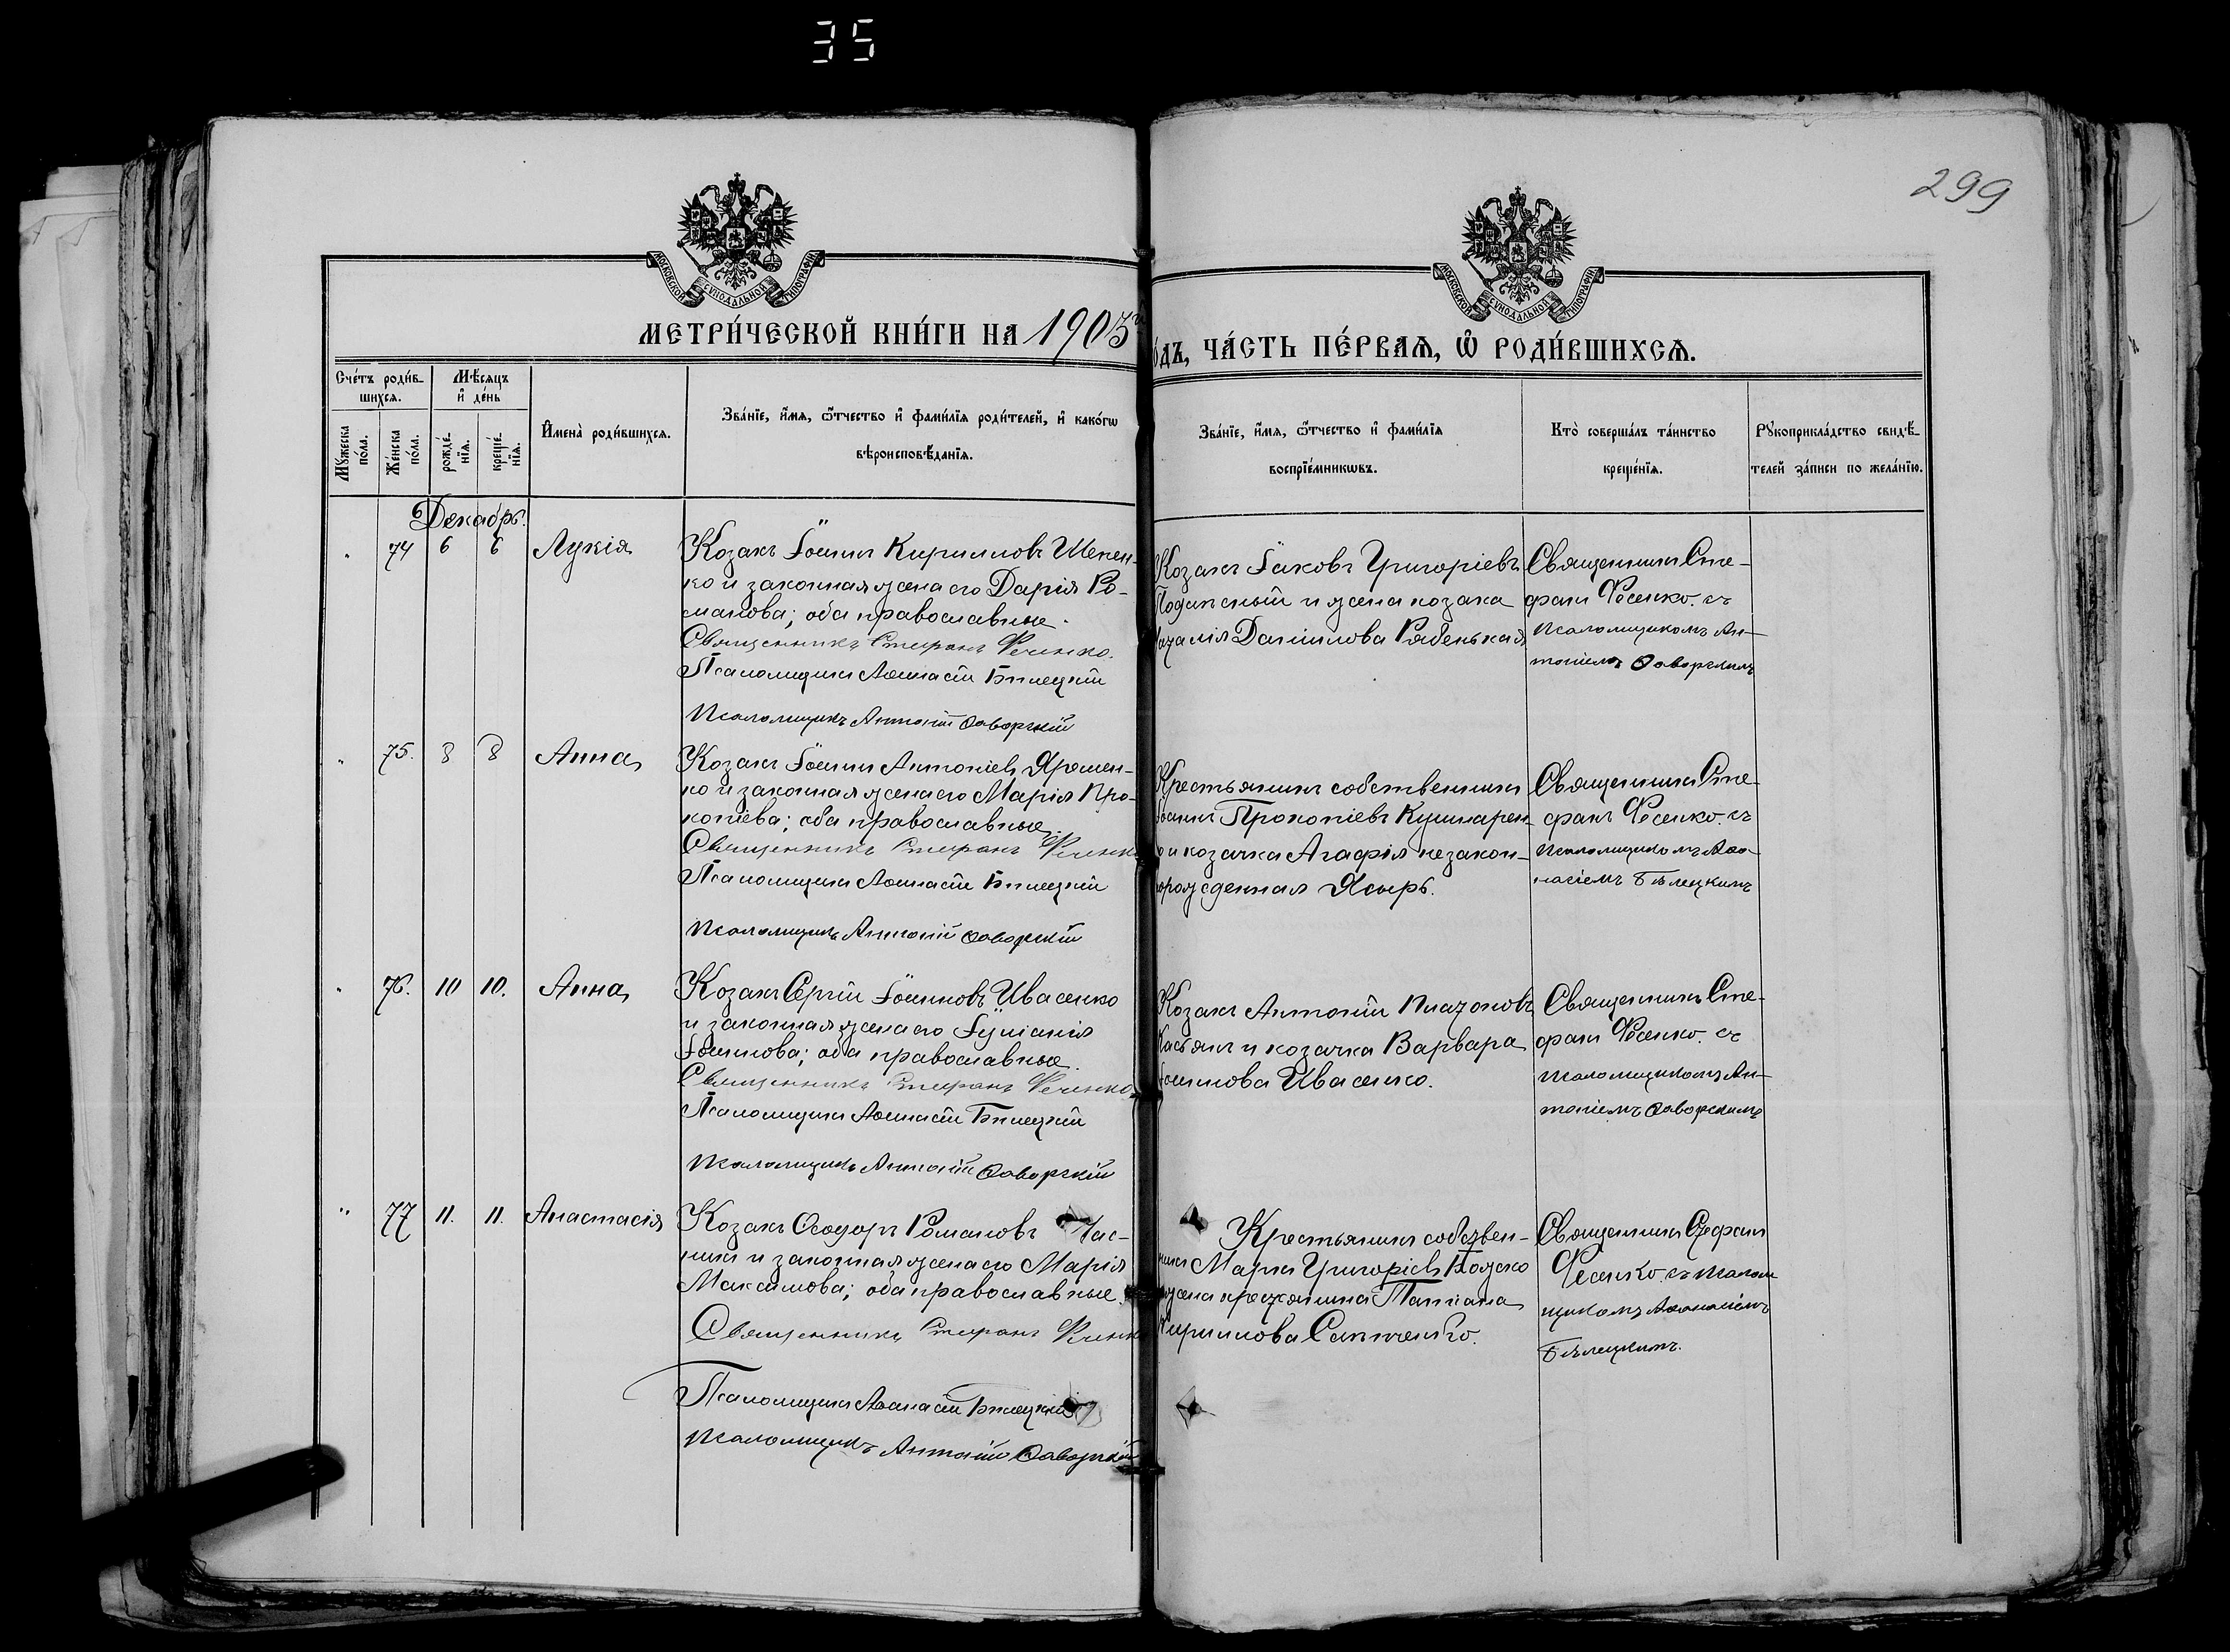 35
299
МОСКОВСКОЙ СУНОДАЛЬНОЙ ТИПОГРАФІИ
МОСКОВСКОЙ СУНОДАЛЬНОЙ ТИПОГРАФІИ
МЕТРИ́ЧЕСКОЙ КНИ́ГИ НА 1905
о́дъ, ЧА́СТЬ ПЕ́РВАѦ, Ѡ҆ РОДИ́ВШИХСѦ.
Сче́тъ роди́в-
шихсѧ.
Мѣ́сѧцъ
и҆ де́нь
Мꙋ́жеска
по́ла.
Же́нска
по́ла.
рожде́-
нїѧ.
креще́-
нїѧ.
И҆мена̀ роди́вшихсѧ.
Зва́нїе, и҆́мѧ, ѻ҆́тчество и҆ фами́лїѧ роди́телей, и҆ како́гѡ
вѣроисповѣ́данїѧ.
Зва́нїе, и҆́мѧ, ѻ҆́тчество и҆ фами́лїѧ
воспрїе́мникѡвъ.
Кто̀ соверша́лъ та́инство
креще́нїѧ.
Рꙋкоприкла́дство свидѣ́-
телей за́писи по жела́нїю.
Декабрь.
74 6 6 Лукія
Козакъ Іоаннъ Кирилловъ Шепен-
ко и законная жена его Дарія Ро-
манова; оба православные.
Священникъ Стефанъ Фесенко.
Псаломщикъ Аѳанасій Билецкій
Псаломщикъ Антоній Заворскій
Козакъ Іаковъ Григоріевъ
и жена козака
Даніилова Рябенькая
Священникъ Сте-
фанъ Фесенко. съ
псаломщикомъ Ан-
тоніемъ Заворскимъ
75. 8 8 Анна
Козакъ Іоаннъ Антоніевъ Яремен-
ко и законная жена его Марія Про-
копіева; оба православные.
Священникъ Стефанъ Фесенко
Псаломщикъ Аѳанасій Билецкій
Псаломщикъ Антоній Заворскій
Крестьянинъ собственникъ
Іоаннъ Прокопіевъ Кушнарен-
о и козачка Агафія незакон-
норожденная Ясырь.
Священникъ Сте-
фанъ Фесенко. съ
псаломщикомъ Аѳа-
насіемъ Бѣлецкимъ
76. 10 10. Анна
Козакъ Сергій Іоанновъ Ивасенко
и законная жена его Іуліанія
Іоаннова; оба православные.
Священникъ Стефанъ Фесенко
Псаломщикъ Аѳанасій Билецкій
Псаломщикъ Антоній Заворскій
Козакъ Антоній Платоновъ
Касьянъ и козачка Варвара
Іоаннова Ивасенко.
Священникъ Сте-
фанъ Фесенко. съ
псаломщикомъ Ан-
тоніемъ Заворскимъ
77 11. 11. Анастасія
Козакъ Ѳеодоръ Романовъ Час-
никъ и законная жена его Марія
Максимова; оба православные.
Священникъ Стефанъ Фесенко
Псаломщикъ Аѳанасій Билецкій
Псаломщикъ Антоній Заворскій
Крестьянинъ собствен-
никъ Маркъ Григоріевъ
жена крестьянина Татіана
Кириллова
Священникъ Стефанъ
Фесенко. съ псалом
щикомъ Аѳанасіемъ
Бѣлецкимъ.